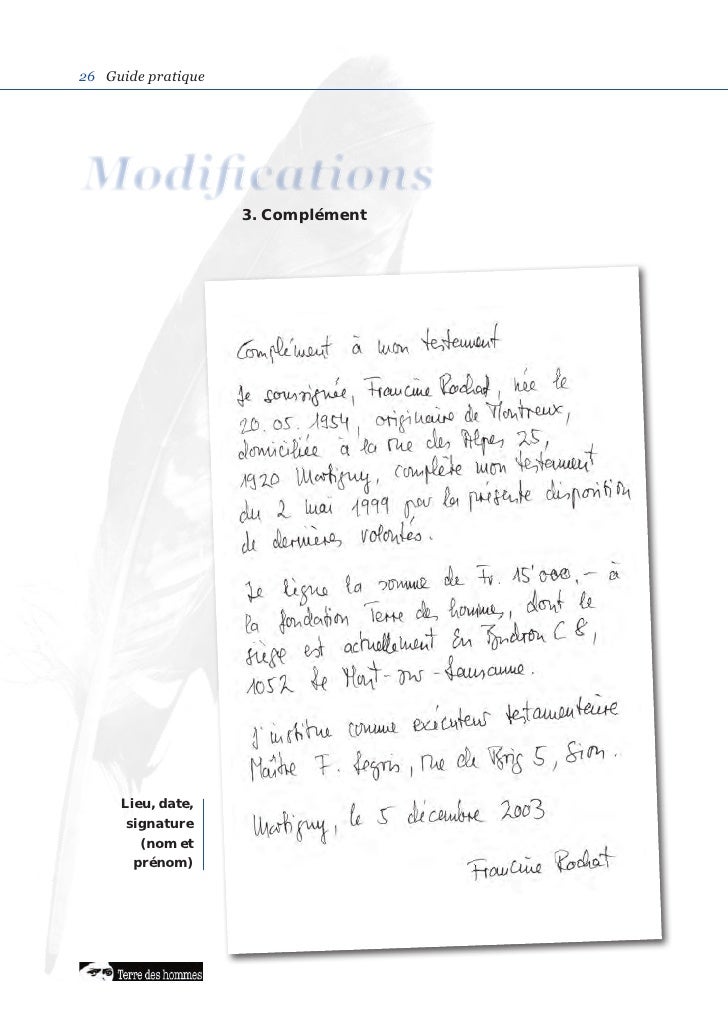 26 Guide pratique
Modifications
3. Complément
Complément à mon testament
Je soussignée, Francine Rochat, née le
20.05.1954, originaire de Montreux,
domiciliée à la rue des Alpes 25,
1920 Martigny, complète mon testament
du 2 mai 1999 par la présente disposition
de dernières volontés.
Je lègue la somme de Fr. 15'000.– à
la fondation Terre des hommes, dont le
siège est actuellement En Budron C 8,
1052 Le Mont-sur-Lausanne.
J'institue comme exécuteur testamentaire
Maître F. Legris, rue de Brig 5, Sion.
Martigny, le 5 décembre 2003
Francine Rochat
Lieu, date,
signature
(nom et
prénom)
Terre des hommes